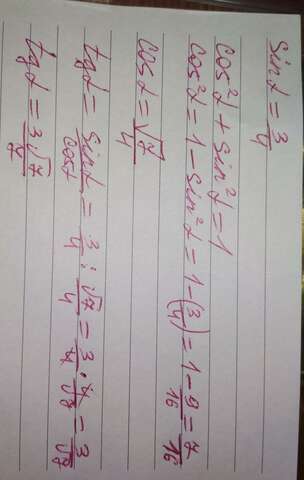 sin α = 3/4
cos²α + sin²α = 1
cos²α = 1 - sin²α = 1 - (3/4) = 1 - 9/16 = 7/16
cos α = √7/4
tg α = sin α/cos α = 3/4 : √7/4 = 3/4 · 4/√7 = 3/√7
tg α = 3√7/7